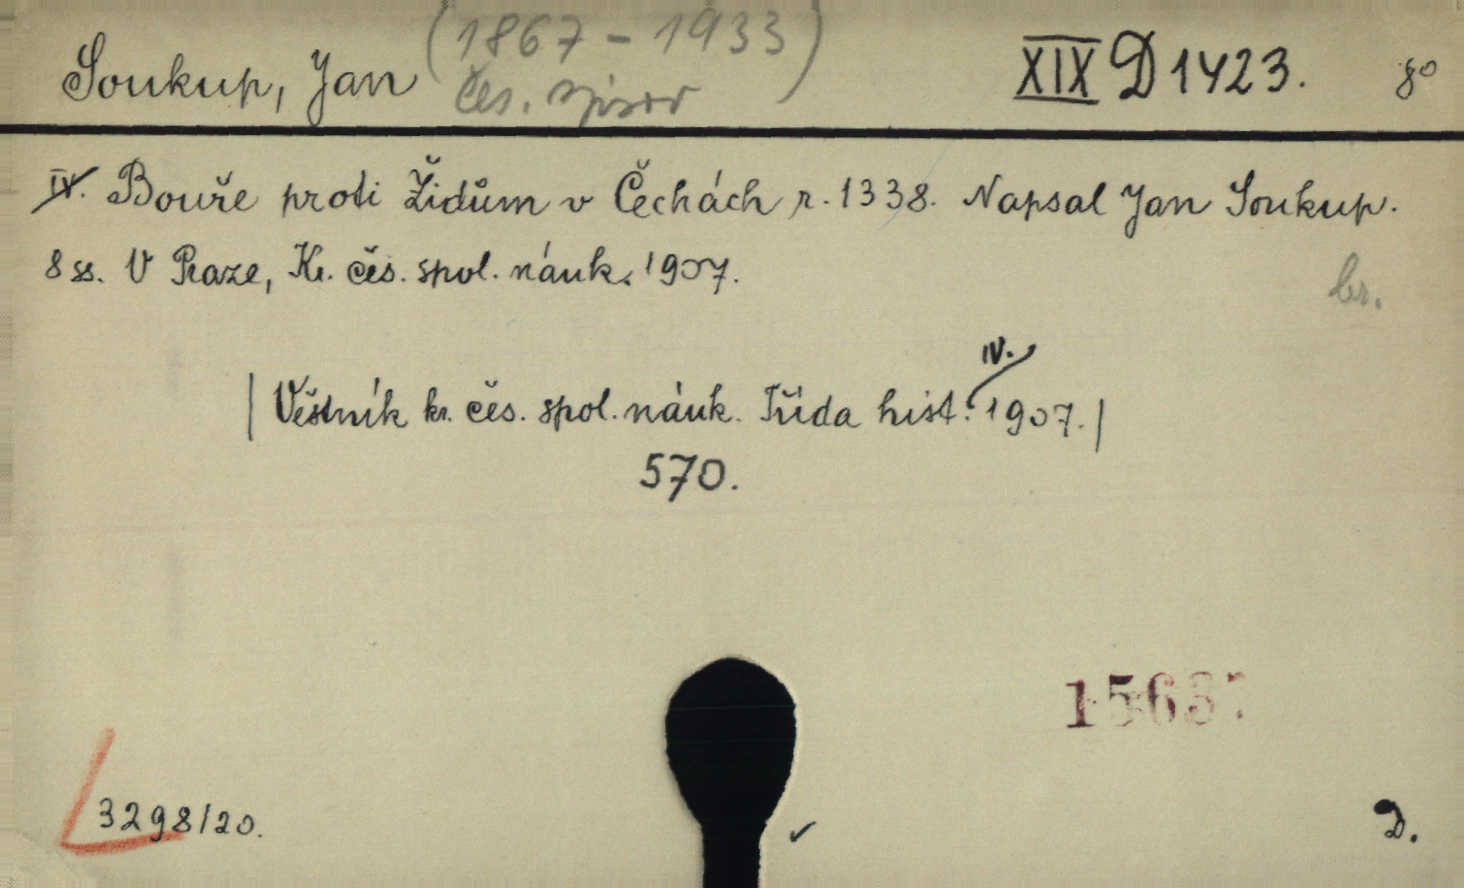 Soukup, Jan (1867-1933) XIX D 1423. 8°
čes. spisov
IV. Bouře proti Židům v Čechách r. 1338. Napsal Jan Soukup.
8 ss. V Praze, Kr. čes. spol. náuk. 1907.
br.
IV.
|Věstník kr. čes. spol. náuk. Třída hist. 1907.|
570.
3298/20.
D.